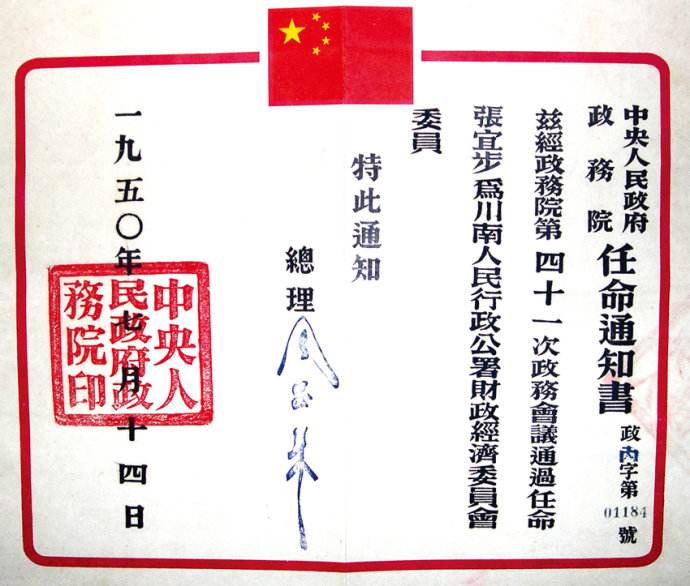 中央人民政府
政務院
任命通知書
政內字第
01184
號
兹經政務院第四十一次政務會議通過任命
張宜步爲川南人民行政公署財政經濟委員會
委員
特此通知
總理
周恩來
一九五〇年七月十四日
中央人
民政府政
務院印